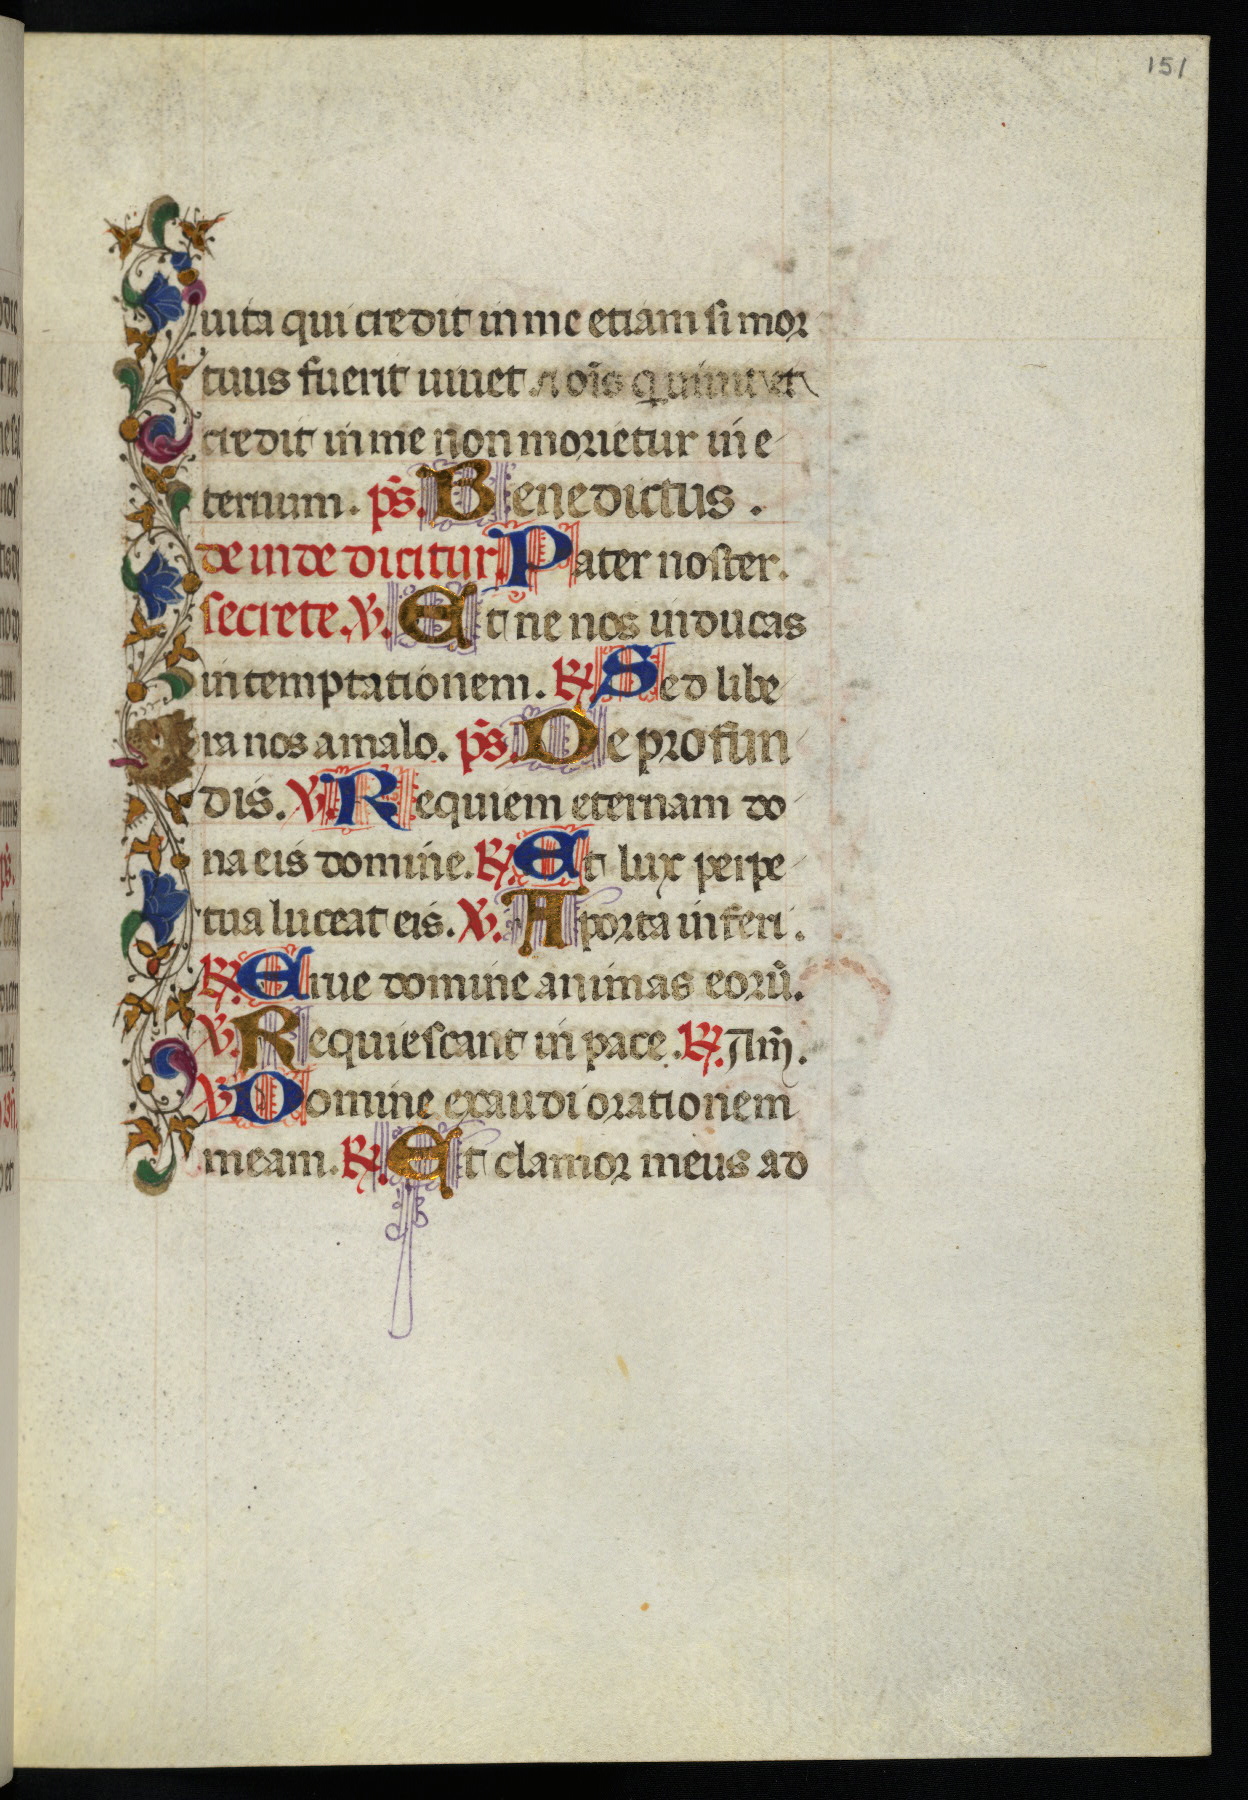 151
uita qui credit in me etiam si mor
tuus fuerit uiuet. ⁊ oīs q uiuit et
credit in me non morietur in e
ternum. ps̄. Benedictus.
deinde dicitur Pater noster.
secrete. V. Et ne nos inducas
in temptationem. R. Sed libe
ra nos a malo. ps̄. De profun
dis. V. Requiem eternam do
na eis domine. R. Et lux perpe
tua luceat eis. V. A porta inferi.
R. Erue domine animas eorū.
V. Requiescant in pace. R. Am̄.
V. Domine exaudi orationem
meam. R. Et clamor meus ad